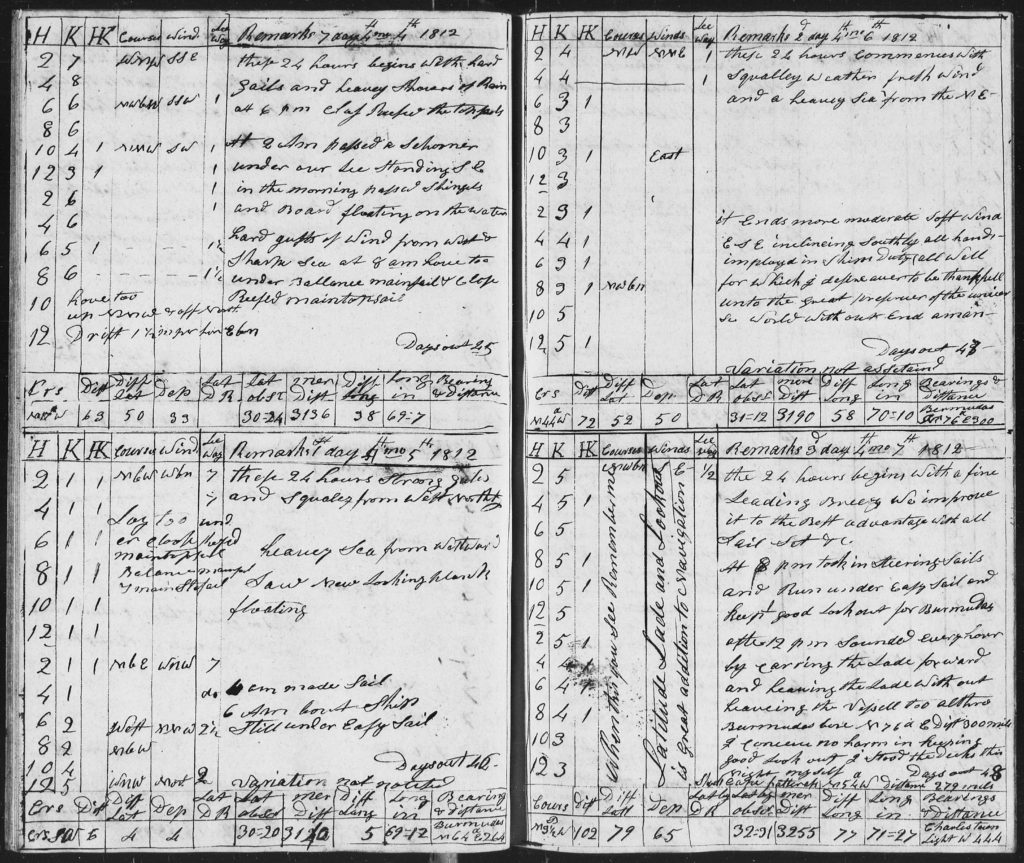 H K HK Course Wind Lee Way Remarks 7 day 4th mo 4th 1812
2 7 WNW SSE these 24 hours begins with hard
4 8 gails and heavey Showers of Rain
6 6 NW6W SSW 1 at 6 pm Clos Reefed the topsails
8 6
10 4 1 NWW SW 1 At 2 Am passed a Schomer
12 3 1 1 under our Lee Standing S E
2 6 1 in the morning passed Shingels
4 6 1 and Board floating on the Water
6 5 1 1½ hard gusts of Wind from West &
8 6 1½ Sharp Sea at 8 am hove too
under Ballance mainsail & Close
10 hove too Reefed maintopsail
up NNW & off North
12 Drift 1 ½ pr hour E6N
Days out 45
Crs Dist Diff Lat Dep Lat DR Lat obst mer Diff Diff Long Long in Bearing & Distance
W 63 50 33 30=24 3136 38 69=7
H K HK Course Wind Lee Way Remarks 1st day 4th mo 5th 1812
2 1 1 N6W W6N 7 these 24 hours Strong gales
4 1 1 7 and Squaley from West North
Lay too und
6 1 1 er Close Reefed
maintopsail heavey Sea from Westward
8 1 1 Balance mainsail
& main Staysail Saw New Looking plank
10 1 1 floating
12 1 1
2 1 1 N6E WNW 7
4 1 do 4 am made Sail
6 2 West NNW 2½ 6 Am bout Ship
Still under Easy Sail
8 2 N6W
10 4 Days out 46
12 5 WNW Nort 2 Variation not noticed
Crs Dist Diff Lat Dep Lat DR Lat obst mer Diff Diff Long Long in Bearing & Distance
Crs NW 6 4 4 30=20 3130 5 69=12 Bermudas N64°E 264
H K HK Course Winds Lee Way Remarks 2d day 4th mo 6th 1812
2 4 NW NNE 1 these 24 hours Commences With
4 4 1 Squalley Weather fresh Wind
6 3 1 and a heavey Sea from the NE
8 3
10 3 1 East
12 3
2 3 1 it Ends more moderate Soft Wind
4 4 1 ESE inclineing Southly all hands
6 3 1 imployd in Ships Duty (all Well
8 3 1 NW6N for Which I desire aver to be thankfull
10 5 unto the great preserver of the univer
12 5 1 se World Without End aman
Days out 47
Variation not assetaind
Crs Dist Diff Lat Dep Lat DR Lat obst mer Diff Diff Long Long in Bearings & Distance
N44°W 72 52 50 31=12 3190 58 70=10 Bermudas N76E300
H K HK Course Winds Lee Way Remarks 3d day 4th mo 7th 1812
2 5 NW6N E ½ the 24 hours begins With a fine
4 5 1 Leading Breeze We improve
6 5 it to the Best advantage With all
Sail Set &c
8 5 1 At 8 pm took in Steering Sails
10 5 1 and Run under Easy Sail and
12 5 keept good Look out for Burmudas
2 5 1 after 12 pm Sounded Every hour
4 4 1 by Carring the Lade forward
6 4 1 and heaving the Lade With out
8 4 1 heaveing the Vessell too altho
10 3 Burmudas bore N76°E Dist 300 miles
I Conceive no harm in keeping
12 3 good Look out I Stood the Decks this
night myself Days out 48
When this you See Remember me
Latitude Lade and Lookout
is Great addition to Navigation
N54W Distanc 279 mils
Cours Dist Diff Lat Dep Lat by Lat by obser mer Diff Diff Long Long in Bearings & Distance
W 102 79 65 32=31 3255 77 71=27 Charles Town Light W 444